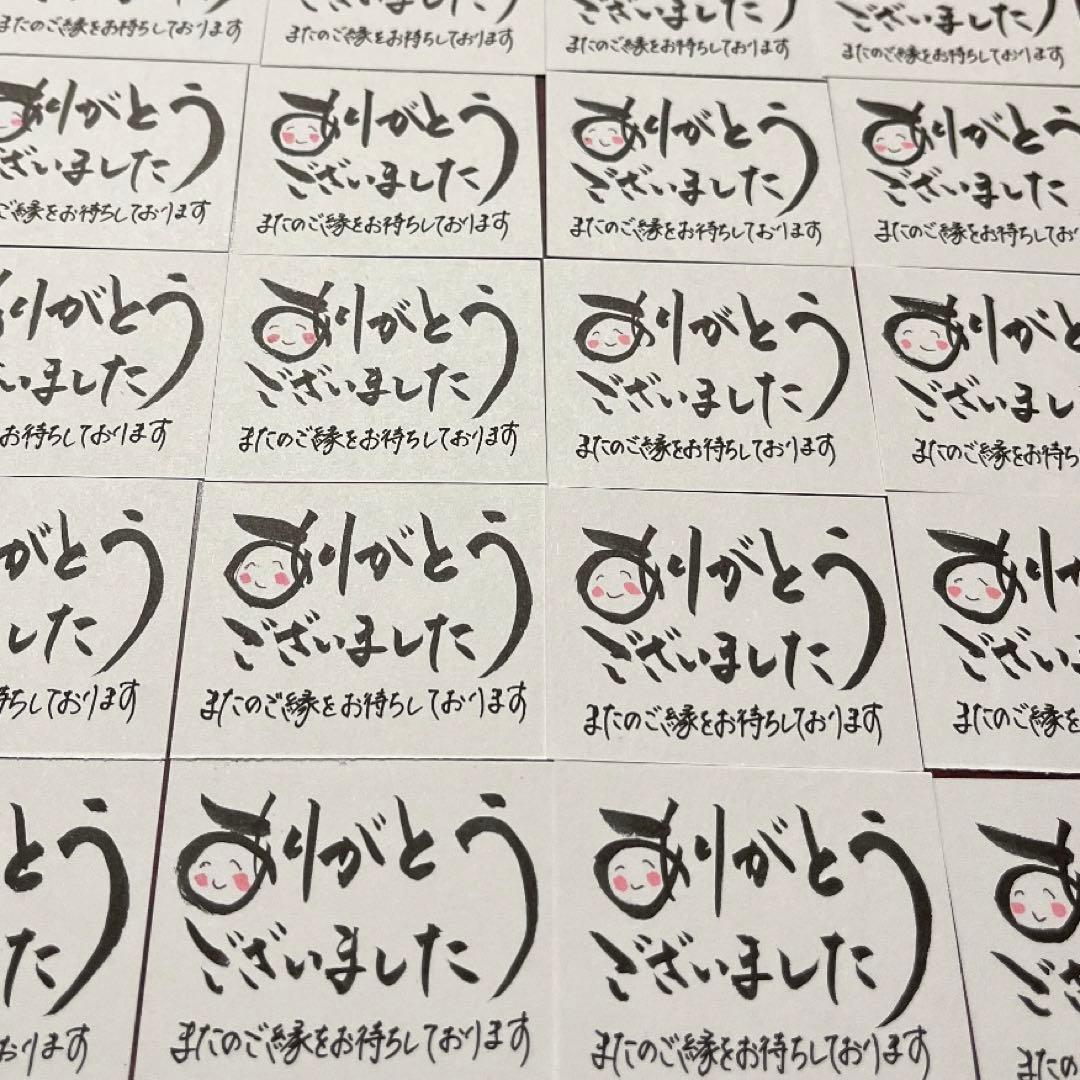 またのご縁をお待ちしております
ございました
またのご縁をお待ちしております
ございました
またのご縁をお待ちしております
ございました
またのご縁をお待ちしております
ありがとう
ございました
のご縁をお待ちしております
ありがとう
ございました
またのご縁をお待ちしております
ありがとう
ございました
またのご縁をお待ちしております
ありがとう
ございました
またのご縁をお待ちしております
りがとう
いました
お待ちしております
ありがとう
ございました
またのご縁をお待ちしております
ありがとう
ございました
またのご縁をお待ちしております
ありがと
ございまし
またのご縁をお待ち
がとう
した
待ちしております
ありがとう
ございました
またのご縁をお待ちしております
ありがとう
ございました
またのご縁をお待ちしております
ありが
ござい
またのご縁を
とう
た
おります
ありがとう
ございました
またのご縁をお待ちしております
ありがとう
ございました
またのご縁をお待ちしております
あ
ご
またの